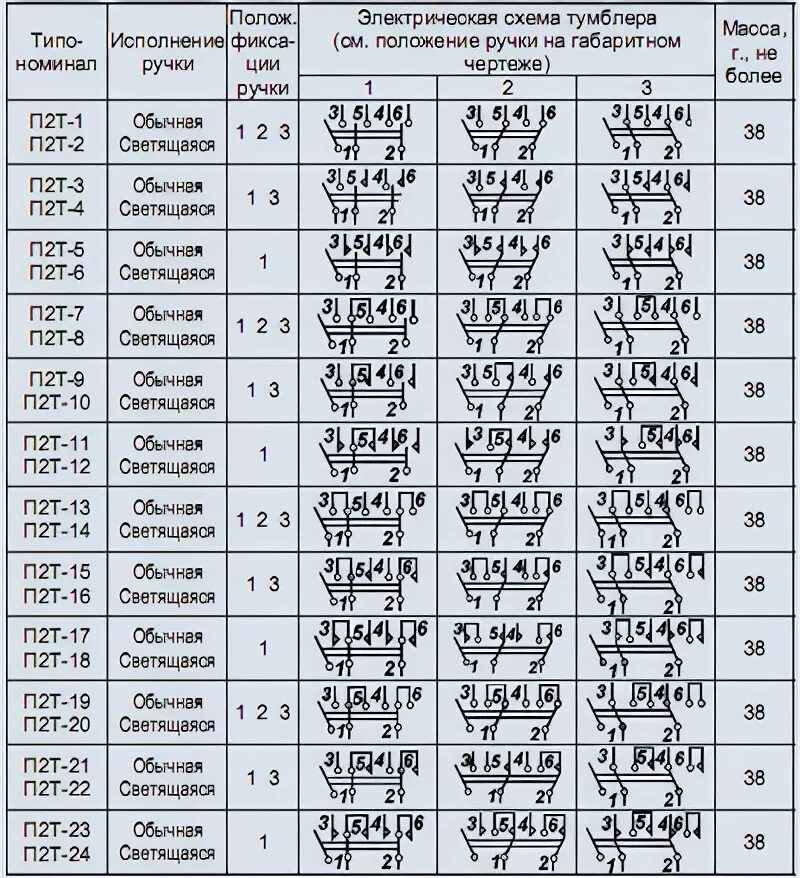 Типо-
номинал
Исполнение
ручки
Полож.
фикса-
ции
ручки
Электрическая схема тумблера
(см. положение ручки на габаритном
чертеже)
1 2 3
Масса,
г., не
более
П2Т-1 Обычная
П2Т-2 Светящаяся
1 2 3
3 5 4 6 3 5 4 6 3 5 4 6
1 2 1 2 1 2
38
П2Т-3 Обычная
П2Т-4 Светящаяся
1 3
3 5 4 6 3 5 4 6 3 5 4 6
1 2 1 2 1 2
38
П2Т-5 Обычная
П2Т-6 Светящаяся
1
3 5 4 6 3 5 4 6 3 5 4 6
1 2 1 2 1 2
38
П2Т-7 Обычная
П2Т-8 Светящаяся
1 2 3
3 5 4 6 3 5 4 6 3 5 4 6
1 2 1 2 1 2
38
П2Т-9 Обычная
П2Т-10 Светящаяся
1 3
3 5 4 6 3 5 4 6 3 5 4 6
1 2 1 2 1 2
38
П2Т-11 Обычная
П2Т-12 Светящаяся
1
3 5 4 6 3 5 4 6 3 5 4 6
1 2 1 2 1 2
38
П2Т-13 Обычная
П2Т-14 Светящаяся
1 2 3
3 5 4 6 3 5 4 6 3 5 4 6
1 2 1 2 1 2
38
П2Т-15 Обычная
П2Т-16 Светящаяся
1 3
3 5 4 6 3 5 4 6 3 5 4 6
1 2 1 2 1 2
38
П2Т-17 Обычная
П2Т-18 Светящаяся
1
3 5 4 6 3 5 4 6 3 5 4 6
1 2 1 2 1 2
38
П2Т-19 Обычная
П2Т-20 Светящаяся
1 2 3
3 5 4 6 3 5 4 6 3 5 4 6
1 2 1 2 1 2
38
П2Т-21 Обычная
П2Т-22 Светящаяся
1 3
3 5 4 6 3 5 4 6 3 5 4 6
1 2 1 2 1 2
38
П2Т-23 Обычная
П2Т-24 Светящаяся
1
3 5 4 6 3 5 4 6 3 5 4 6
1 2 1 2 1 2
38